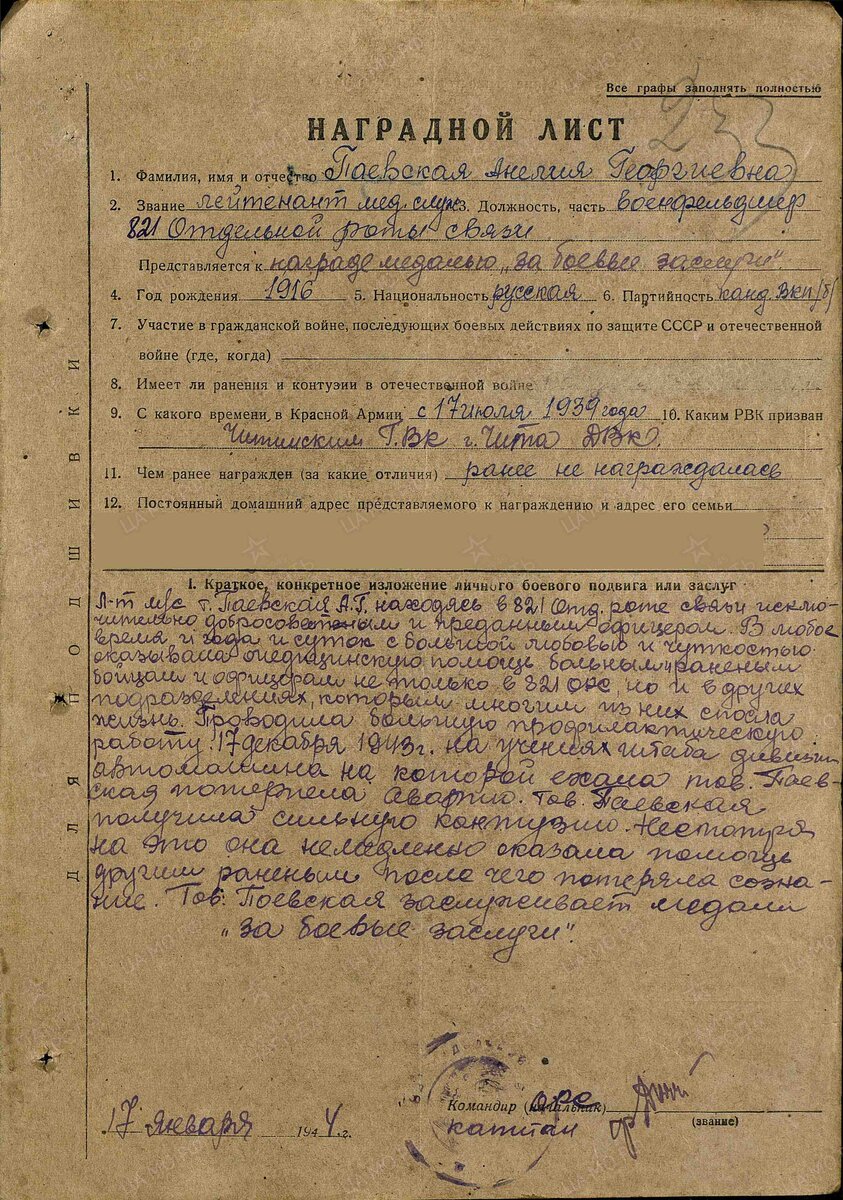 Все графы заполнять полностью
233
НАГРАДНОЙ ЛИСТ
1. Фамилия, имя и отчество Паевская Анелия Георгиевна
2. Звание лейтенант мед. служ 3. Должность, часть военфельдшер
821 Отдельной роты связи
Представляется к награде медалью „за боевые заслуги".
4. Год рождения 1916 5. Национальность русская 6. Партийность канд. ВКП/б/
7. Участие в гражданской войне, последующих боевых действиях по защите СССР и отечественной
войне (где, когда)
8. Имеет ли ранения и контузии в отечественной войне
9. С какого времени в Красной Армии с 17 июля 1939 года 10. Каким РВК призван
Читинским Г.ВК г. Чита ДВК.
11. Чем ранее награжден (за какие отличия) ранее не награждалась
12. Постоянный домашний адрес представляемого к награждению и адрес его семьи
I. Краткое, конкретное изложение личного боевого подвига или заслуг
Л-т м/с т. Паевская А.Г. находясь в 821 Отд. роте связи исклю-
чительно добросовестным и преданным офицером. В любое
время и года и суток с большой любовью и чуткостью
оказывала медицинскую помощь больным и раненым
бойцам и офицерам не только в 821 орс, но и в других
подразделениях, которым многим из них спасла
жизнь. Проводила большую профилактическую
работу. 17 декабря 1943 г. на учениях штаба дивизии
автомашина на которой ехала тов. Паев-
ская потерпела аварию. Тов. Паевская
получила сильную контузию. Несмотря
на это она немедленно оказала помощь
другим раненым после чего потеряла созна-
ние. Тов. Паевская заслуживает медали
„за боевые заслуги".
Командир (начальник) орс
капитан
(звание)
17 января 1944 г.
ДЛЯ ПОДШИВКИ